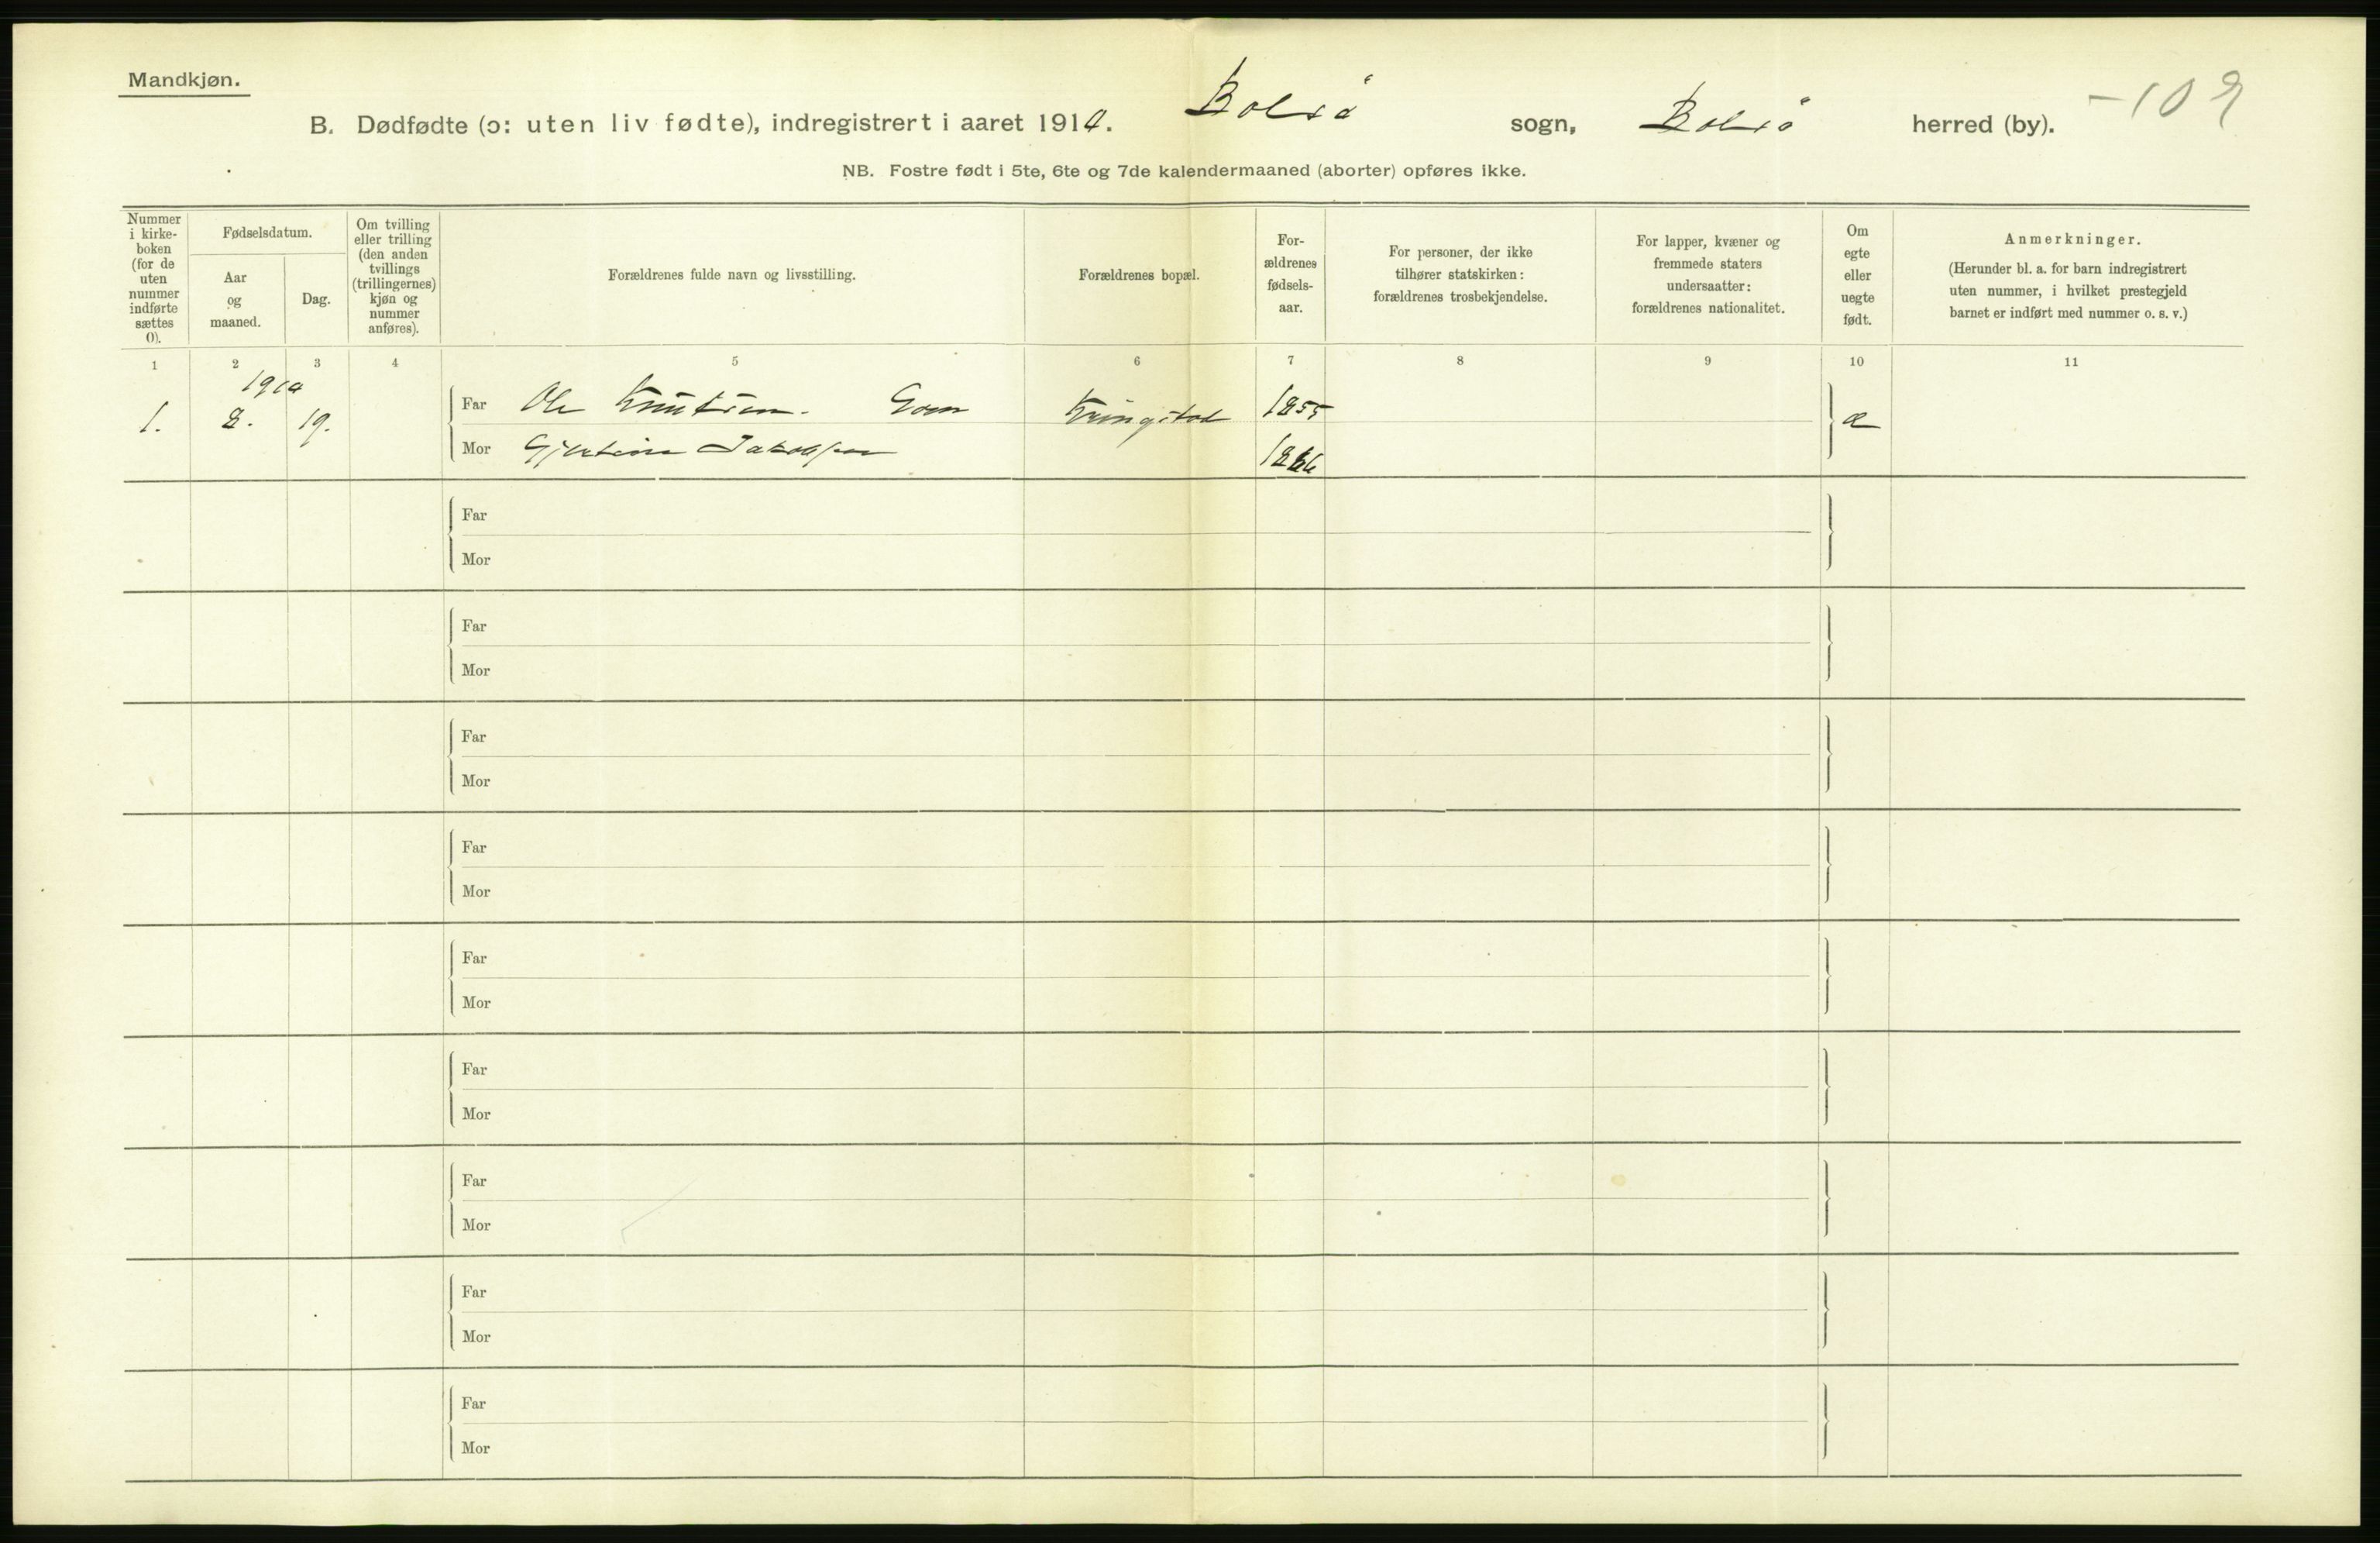 Mandkjøn.
B. Dødfødte (ɔ: uten liv fødte), indregistrert i aaret 1910. Bolsø sogn, Bolsø herred (by). -109
NB. Fostre født i 5te, 6te og 7de kalendermaaned (aborter) opføres ikke.
Nummer i kirke-
boken
(for de
uten
nummer
indførte
sættes
0).
Fødselsdatum.
Aar
og
maaned.
Dag.
Om tvilling
eller trilling
(den anden
tvillings
(trillingernes)
kjøn og
nummer
anføres).
Forældrenes fulde navn og livsstilling.
Forældrenes bopæl.
For-
ældrenes
fødsels-
aar.
For personer, der ikke
tilhører statskirken:
forældrenes trosbekjendelse.
For lapper, kvæner og
fremmede staters
undersaatter:
forældrenes nationalitet.
Om
egte
eller
uegte
født.
Anmerkninger.
(Herunder bl. a. for barn indregistrert
uten nummer, i hvilket prestegjeld
barnet er indført med nummer o. s. v.)
1 2 3 4 5 6 7 8 9 10 11
1910
1. 2. 19. Far Ole Knutsen. Gom Kringstad 1855 æ
Mor Gjertine Jakobsen 1866
Far
Mor
Far
Mor
Far
Mor
Far
Mor
Far
Mor
Far
Mor
Far
Mor
Far
Mor
Far
Mor